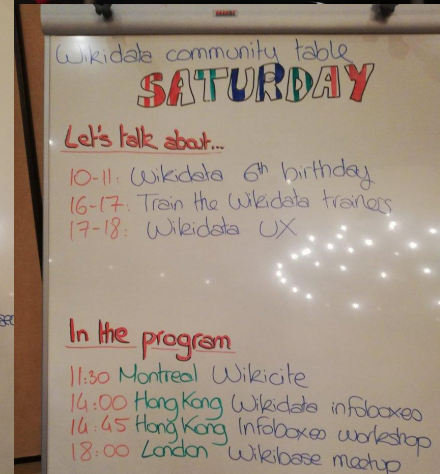 Wikidata community table
SATURDAY
Let's talk about...
10-11: Wikidata 6th birthday
16-17: Train the Wikidata trainers
17-18: Wikidata UX
In the program
11:30 Montreal Wikicite
14:00 Hong Kong Wikidata infoboxes
14:45 Hong Kong Infoboxes workshop
18:00 London Wikibase meetup